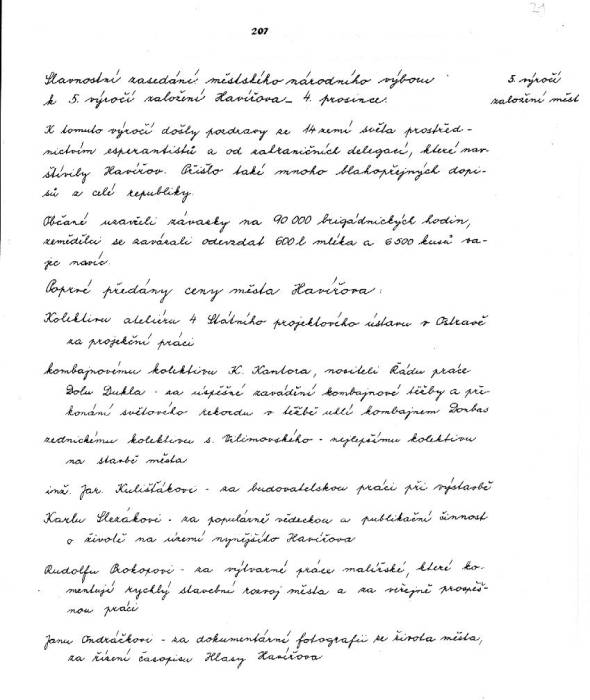 21
207
Slavnostní zasedání městského národního výboru
k 5. výročí založení Havířova - 4. prosince.
5. výročí
založení měst
K tomuto výročí došly pozdravy ze 14 zemí světa prostřed-
nictvím esperantistů a od zahraničních delegací, které nav-
štívily Havířov. Přišlo také mnoho blahopřejných dopi-
sů z celé republiky.
Občané uzavřeli závazky na 90 000 brigádnických hodin,
zemědělci se zavázali odevzdat 600 l mléka a 6 500 kusů va-
jec navíc.
Poprvé předány ceny města Havířova:
Kolektivu ateliéru 4 Státního projektového ústavu v Ostravě
za projekční práci
kombajnovému kolektivu K. Kantora, nositeli Řádu práce
Dolu Dukla - za úspěšné zavádění kombajnové těžby a pře-
konání světového rekordu v těžbě uhlí kombajnem Donbas
zednickému kolektivu s. Vilimovského - nejlepšímu kolektivu
na stavbě města
inž. Jar. Kulišťákovi - za budovatelskou práci při výstavbě
Karlu Slezákovi - za populárně vědeckou a publikační činnost
o životě na území nynějšího Havířova
Rudolfu Prokopovi - za výtvarné práce malířské, které ko-
mentují rychlý stavební rozvoj města a za veřejně prospěš-
nou práci
Janu Ondráčkovi - za dokumentární fotografii ze života města,
za řízení časopisu Hlasy Havířova